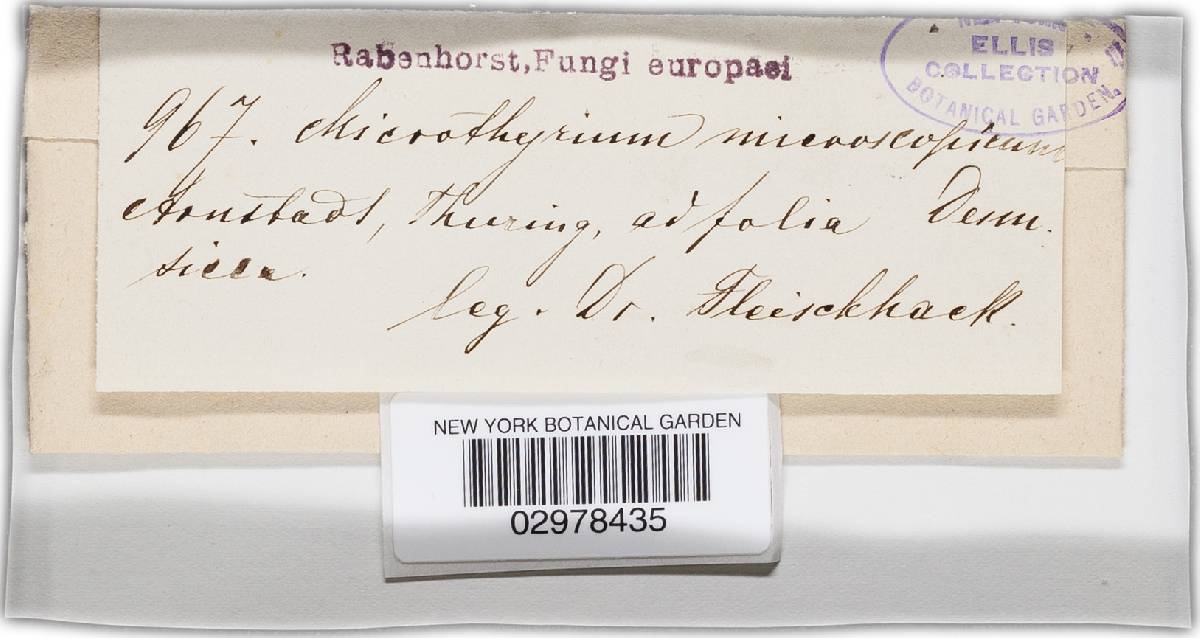 Rabenhorst, Fungi europaei
ELLIS
COLLECTION
BOTANICAL GARDEN.
967. Microthyrium microscopicum
Arnstadt, Thuring, ad folia Desm.
leg. Dr. Fleischhack.
NEW YORK BOTANICAL GARDEN
02978435